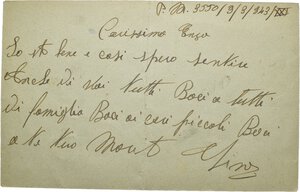 P.M. 3550/9/3/943/XXI
Carissimo Enzo
Io stò bene e così spero sentire
Anche di Voi tutti Baci a tutti
Di famiglia Baci ai cari piccoli Baci
a te